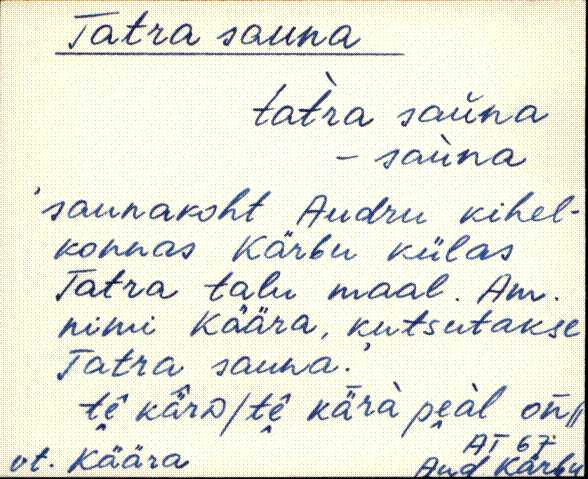 Tatra sauna
tat̀ra saŭna
- saùna
'saunakoht Audru kihel-
konnas Kärbu külas
Tatra talu maal. Am.
nimi Käära, kutsutakse
Tatra sauna.'
kǟrà peàl on̄//
AT 67.
vt. Käära
Aud Kärbu